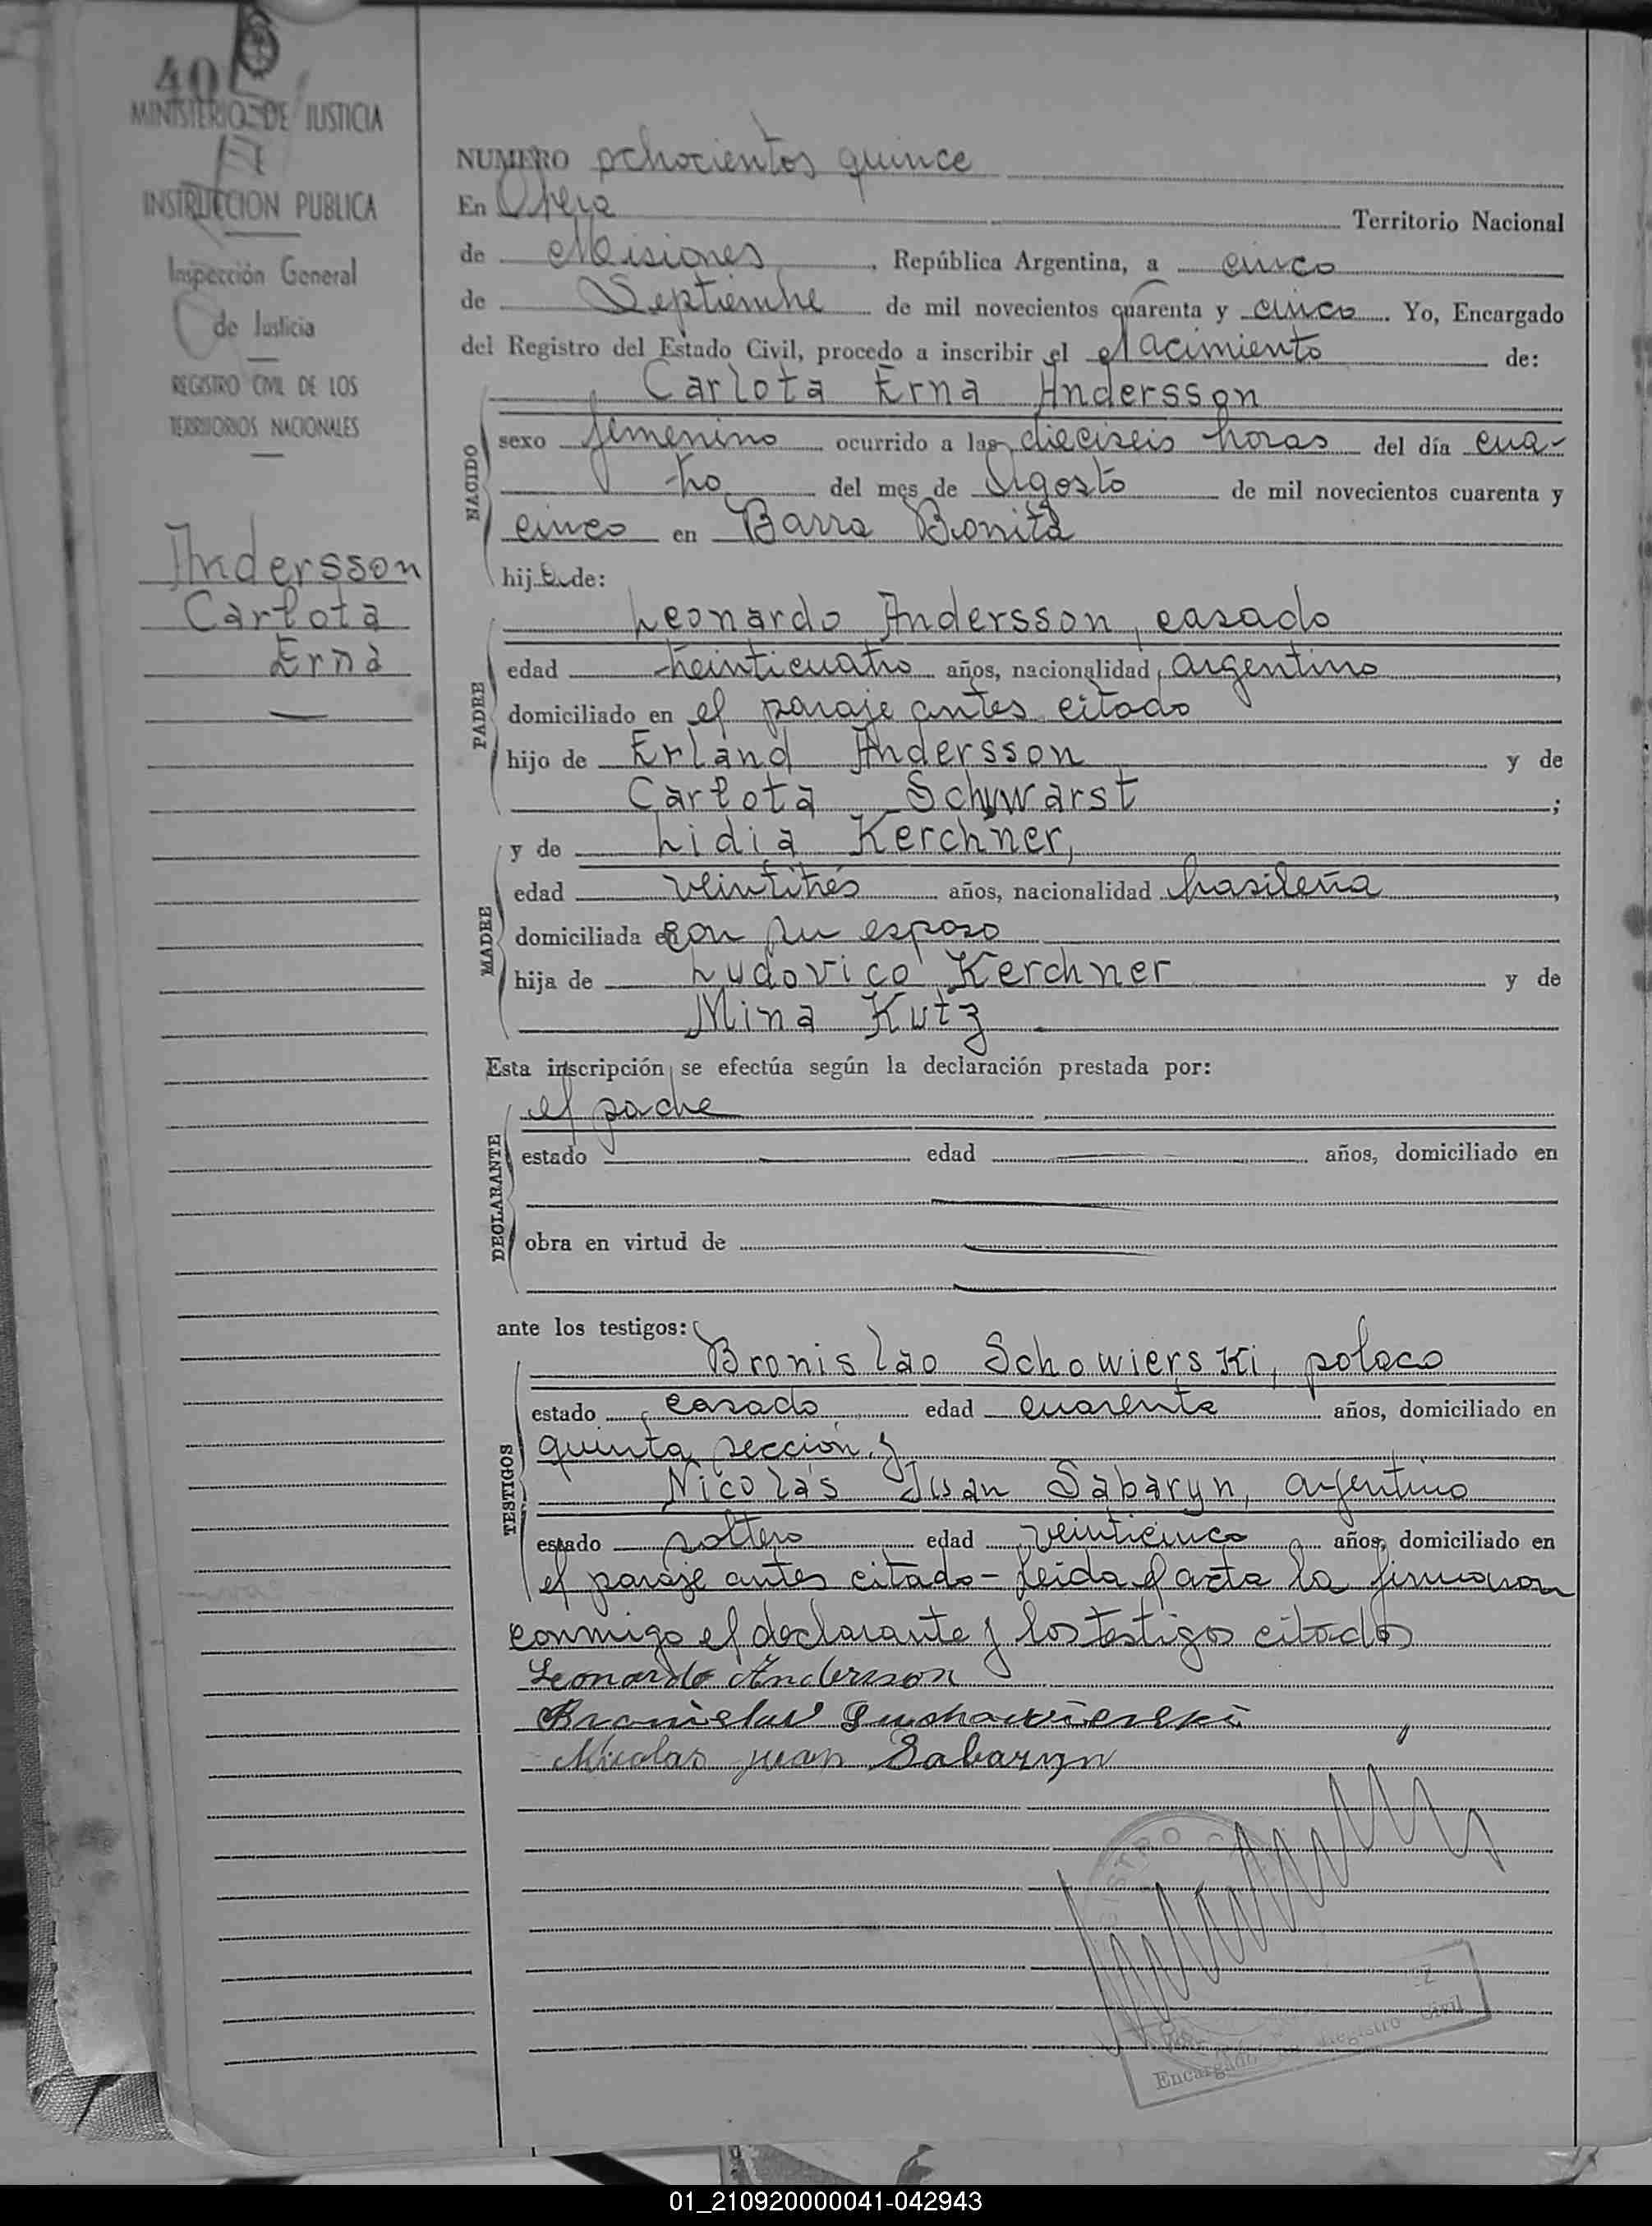 40
MINISTERIO DE JUSTICIA
E
INSTRUCCION PUBLICA
Inspección General
de Justicia
REGISTRO CIVIL DE LOS
TERRITORIOS NACIONALES
Andersson
Carlota
Erna
NUMERO ochocientos quince
En Oberá Territorio Nacional
de Misiones, República Argentina, a cinco
de Septiembre de mil novecientos cuarenta y cinco. Yo, Encargado
del Registro del Estado Civil, procedo a inscribir el Nacimiento de:
Carlota Erna Andersson
NACIDO
sexo femenino ocurrido a las dieciseis horas del día cua-
tro del mes de Agosto de mil novecientos cuarenta y
cinco en Barra Bonita
hija de:
PADRE
Leonardo Andersson, casado
edad veinticuatro años, nacionalidad argentino,
domiciliado en el paraje antes citado
hijo de Erland Andersson y de
Carlota Schwarst;
MADRE
y de Lidia Kerchner,
edad veintitrés años, nacionalidad brasileña,
domiciliada en con su esposo
hija de Ludovico Kerchner y de
Mina Kutz
Esta inscripción se efectúa según la declaración prestada por:
DECLARANTE
el padre
estado edad años, domiciliado en
obra en virtud de
ante los testigos:
TESTIGOS
Bronislao Schowierski, polaco
estado casado edad cuarenta años, domiciliado en
quinta sección y
Nicolás Juan Sabaryn, argentino
estado soltero edad veinticinco años, domiciliado en
el paraje antes citado - Leida el acta la firmaron
conmigo el declarante y los testigos citados
Leonardo Andersson
Nicolas juan Sabaryn
Encargado Registro Civil
01_210920000041-042943